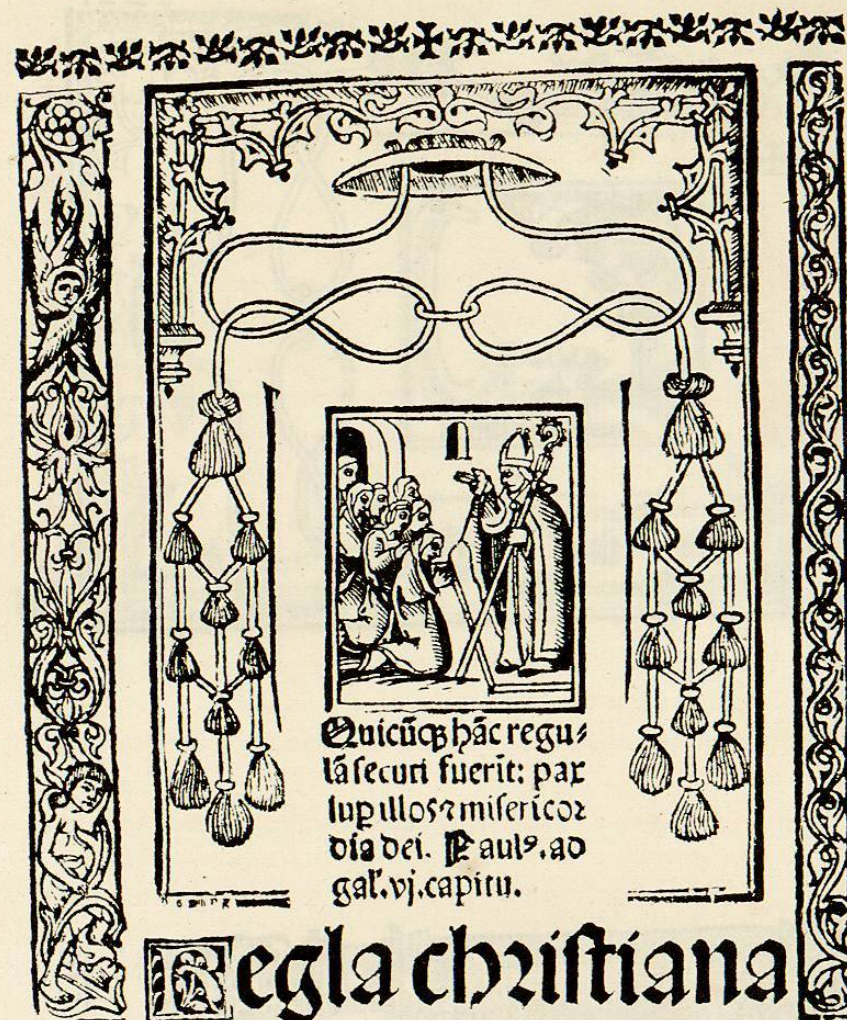 Quicūqꝫ hāc regu⸗
lā ſecuti fuerīt: pax
ſuꝑ illos ⁊ miſericor
dia dei. Paulꝰ. ad
gał. vj. capitu.
Regla chriſtiana